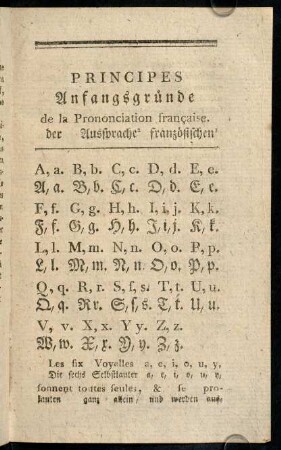 PRINCIPES
Anfangsgründe
de la Prononciation française.
der Aussprache französischen
A, a. B, b. C, c. D, d. E, e.
A, a. B, b. C, c. D, d. E, e.
F, f. G, g. H, h. I, i, j. K, k.
F, f. G, g. H, h. J, i, j. K, k.
L, l. M, m. N, n. O, o. P, p.
L, l. M, m. N, n. O, o. P, p.
Q, q. R, r. S, ſ, s. T, t. U, u.
Q, q. R r. S, ſ, s. T, t. U, u.
V, v. X, x. Y y. Z, z.
W, w. X, x. Y, y. Z, z.
Les six Voyelles a, e, i, o, u, y,
Die sechs Selbstlauter a, e, i, o, u, y,
sonnent toutes seules, & se pro-
lauten ganz allein, und werden aus,